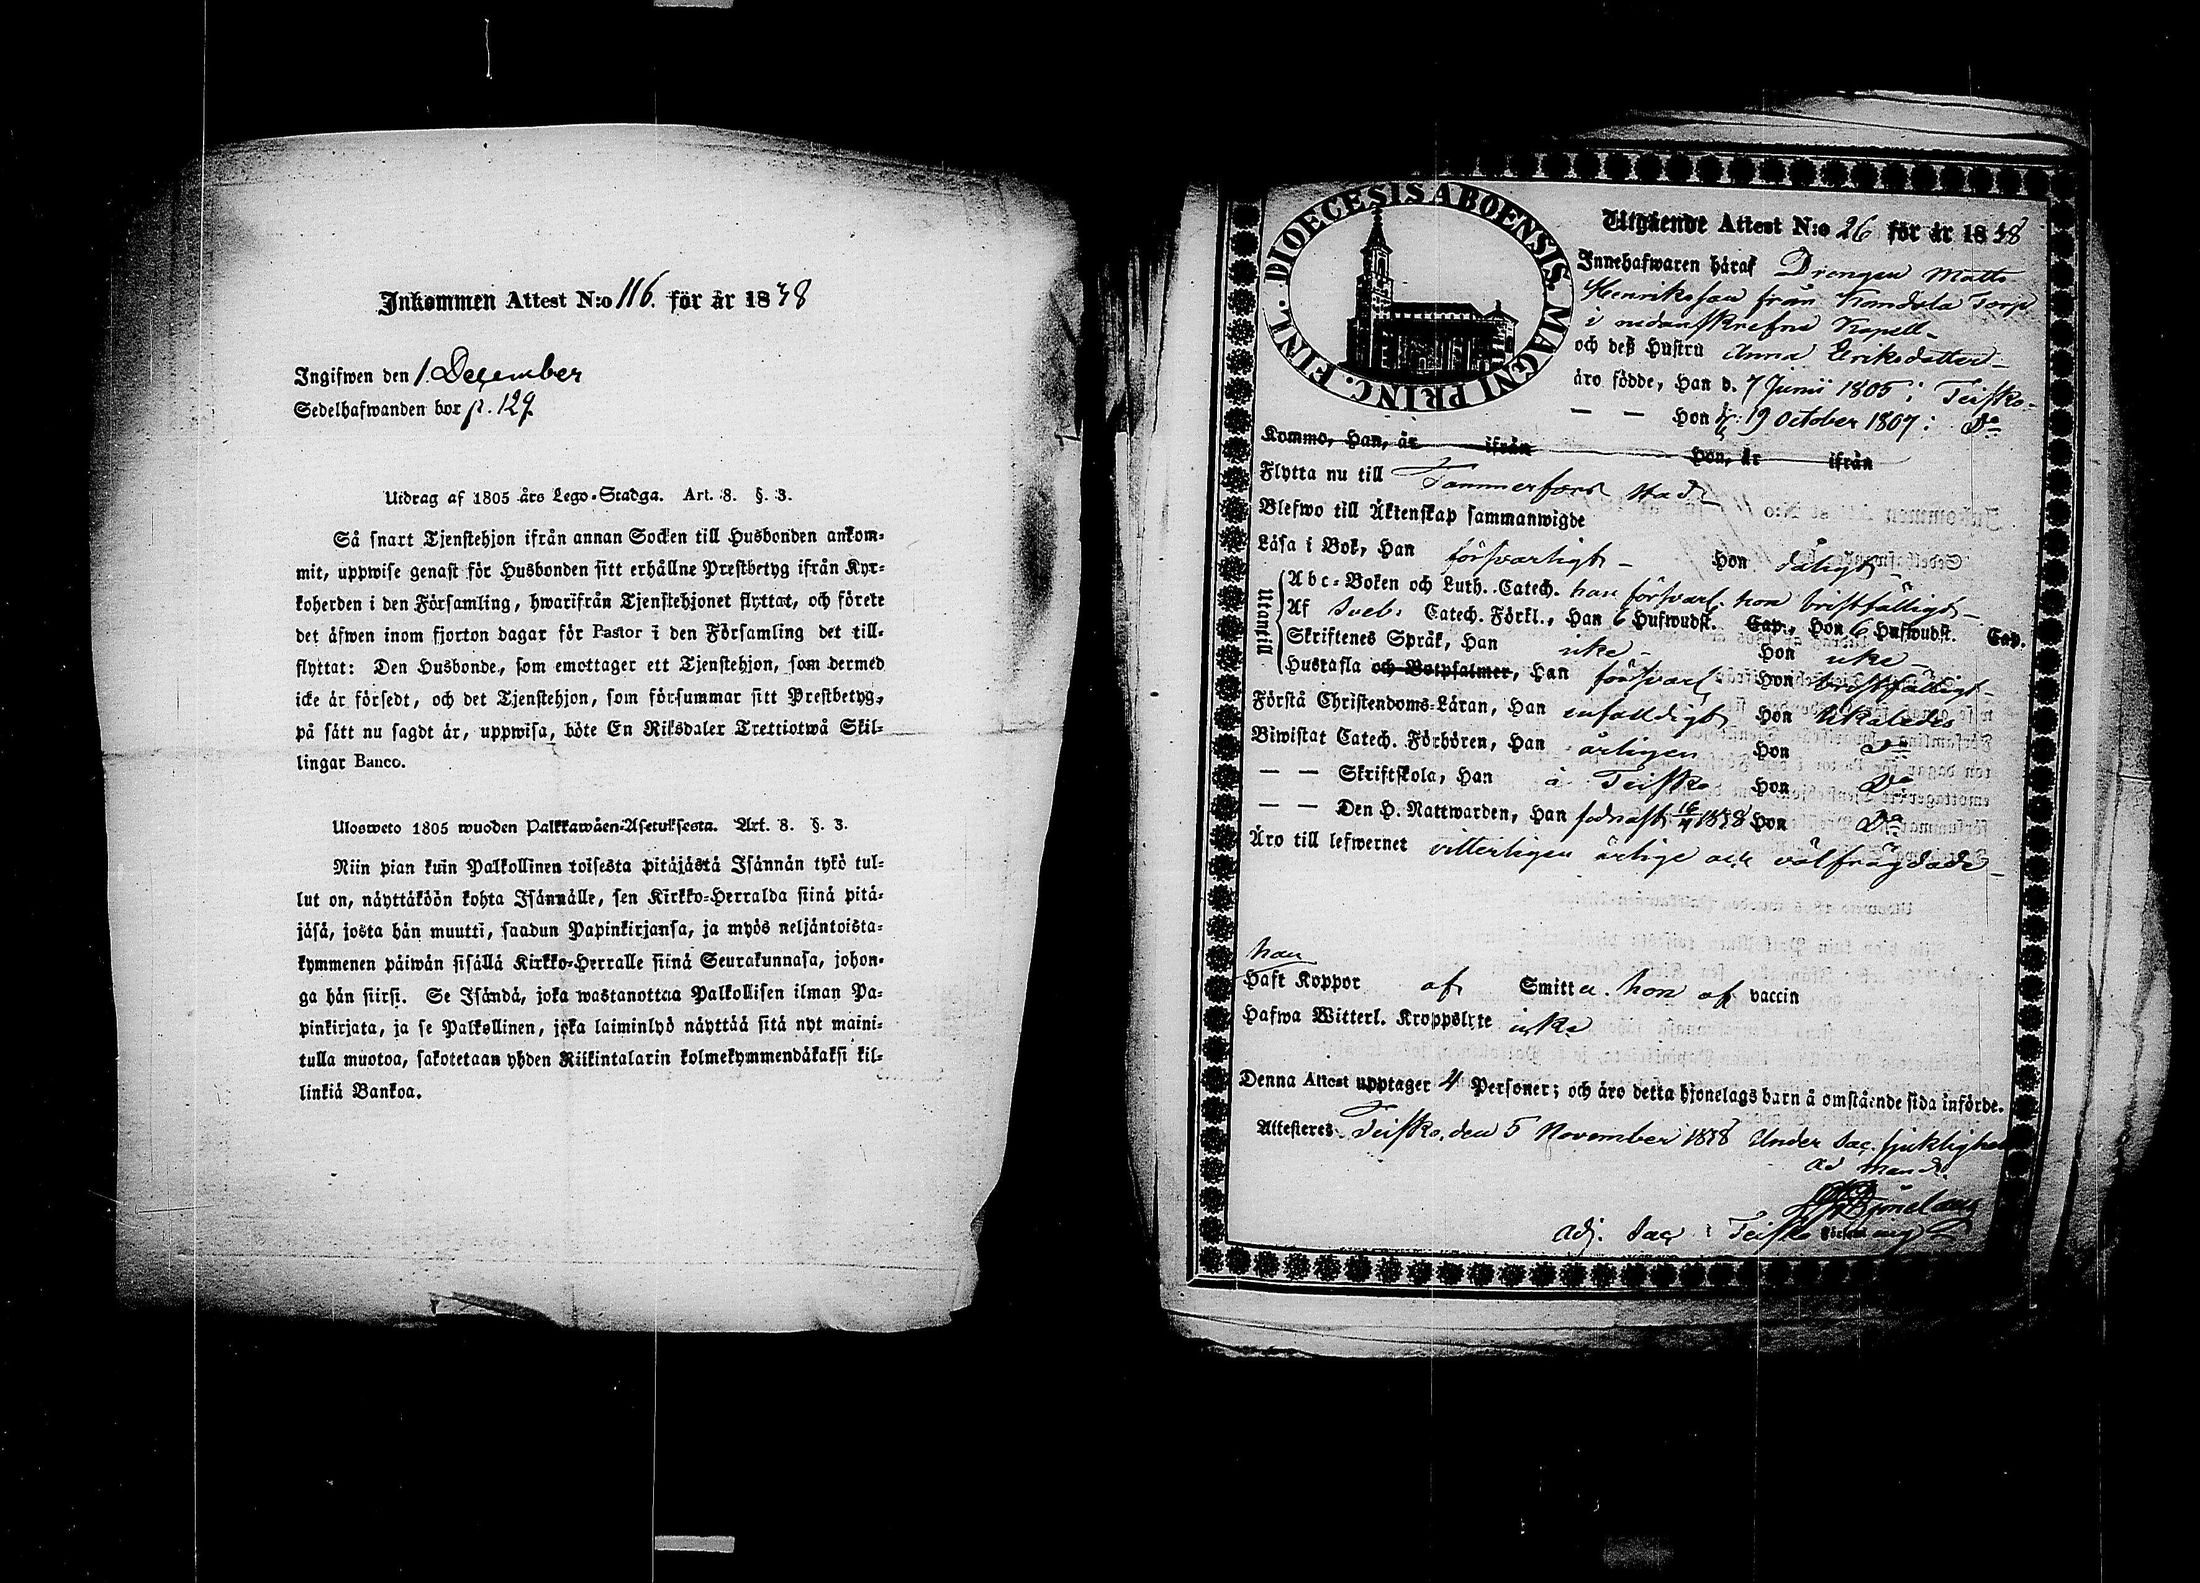 Inkommen Attest N:o 116. för år 1838
Ingifwen den 1. December
Sedelhafwanden bor p. 129.
Utdrag af 1805 års Lego-Stadga. Art. 8. §. 3.
Så snart Tjenstehjon ifrån annan Socken till Husbonden ankom-
mit, uppwise genast för Husbonden sitt erhållne Prestbetyg ifrån Kyr-
koherden i den Församling, hwarifrån Tjenstehjonet flyttat, och förete
det äfwen inom fjorton dagar för Pastor i den Församling det till-
flyttat: Den Husbonde, som emottager ett Tjenstehjon, som dermed
icke är försedt, och det Tjenstehjon, som försummar sitt Prestbetyg,
på sätt nu sagdt är, uppwisa, böte En Riksdaler Trettiotwå Skil-
lingar Banco.
Ulosweto 1805 wuoden Palkkawäen-Asetuksesta. Art. 8. §. 3.
Niin pian kuin Palkollinen toisesta pitäjästä Isännän tykö tul-
lut on, näyttäköön kohta Isännälle, sen Kirkko-Herralda siinä pitä-
jäsä, josta hän muutti, saadun Papinkirjansa, ja myös neljäntoista-
kymmenen päiwän sisällä Kirkko-Herralle siinä Seurakunnasa, johon-
ga hän siirsi. Se Isändä, joka wastanottaa Palkollisen ilman Pa-
pinkirjata, ja se Palkollinen, joka laiminlyö näyttää sitä nyt maini-
tulla muotoa, sakotetaan yhden Riikintalarin kolmekymmendäkaksi kil-
linkiä Bankoa.
DIOECESIS ABOENSIS. MAGNI PRINC. FINL.
Utgående Attest N:o 26 för år 1838
Innehafwaren häraf Drengen Matts
Henriksson från Kandola Torp
i nedanskrefne Kapell
och deß Hustru Anna Eriksdotter
äro födde, Han d. 7 Junii 1805 i Teisko
— — Hon d. 19 October 1807 i Do
Kommo, Han, år ifrån Hon, år ifrån
Flytta nu till Tammerfors stad
Blefwo till Äktenskap sammanwigde
Läsa i Bok, Han försvarligt Hon dåligt
Utantill
Abc-Boken och Luth. Catech. han försvarl. hon bristfälligt
Af Sveb: Catech. Förkl., Han 6 Hufwudst. Cap., Hon 6 Hufwudst. Cap.
Skriftenes Språk, Han icke Hon icke
Hustafla och Botpsalmer, Han försvarl. Hon bristfälligt
Förstå Christendoms-Läran, Han enfaldigt Hon likaledes
Biwistat Catech. Förhören, Han årligen Hon Do
— — Skriftskola, Han å Teisko Hon Do
— — Den H. Nattwarden, Han 1838 Hon Do
Äro till lefwernet vitterligen ärlige och välfrägdade
han
Haft Koppor af Smitta. hon af vaccin
Hafwa Witterl. Kroppslyte icke
Denna Attest upptager 4 Personer; och äro detta hjonelags barn å omstående sida införde.
Attesteras Teisko, den 5 November 1838 Under Sac. sjuklighet
ad mand.
adj. Sac. i Teisko